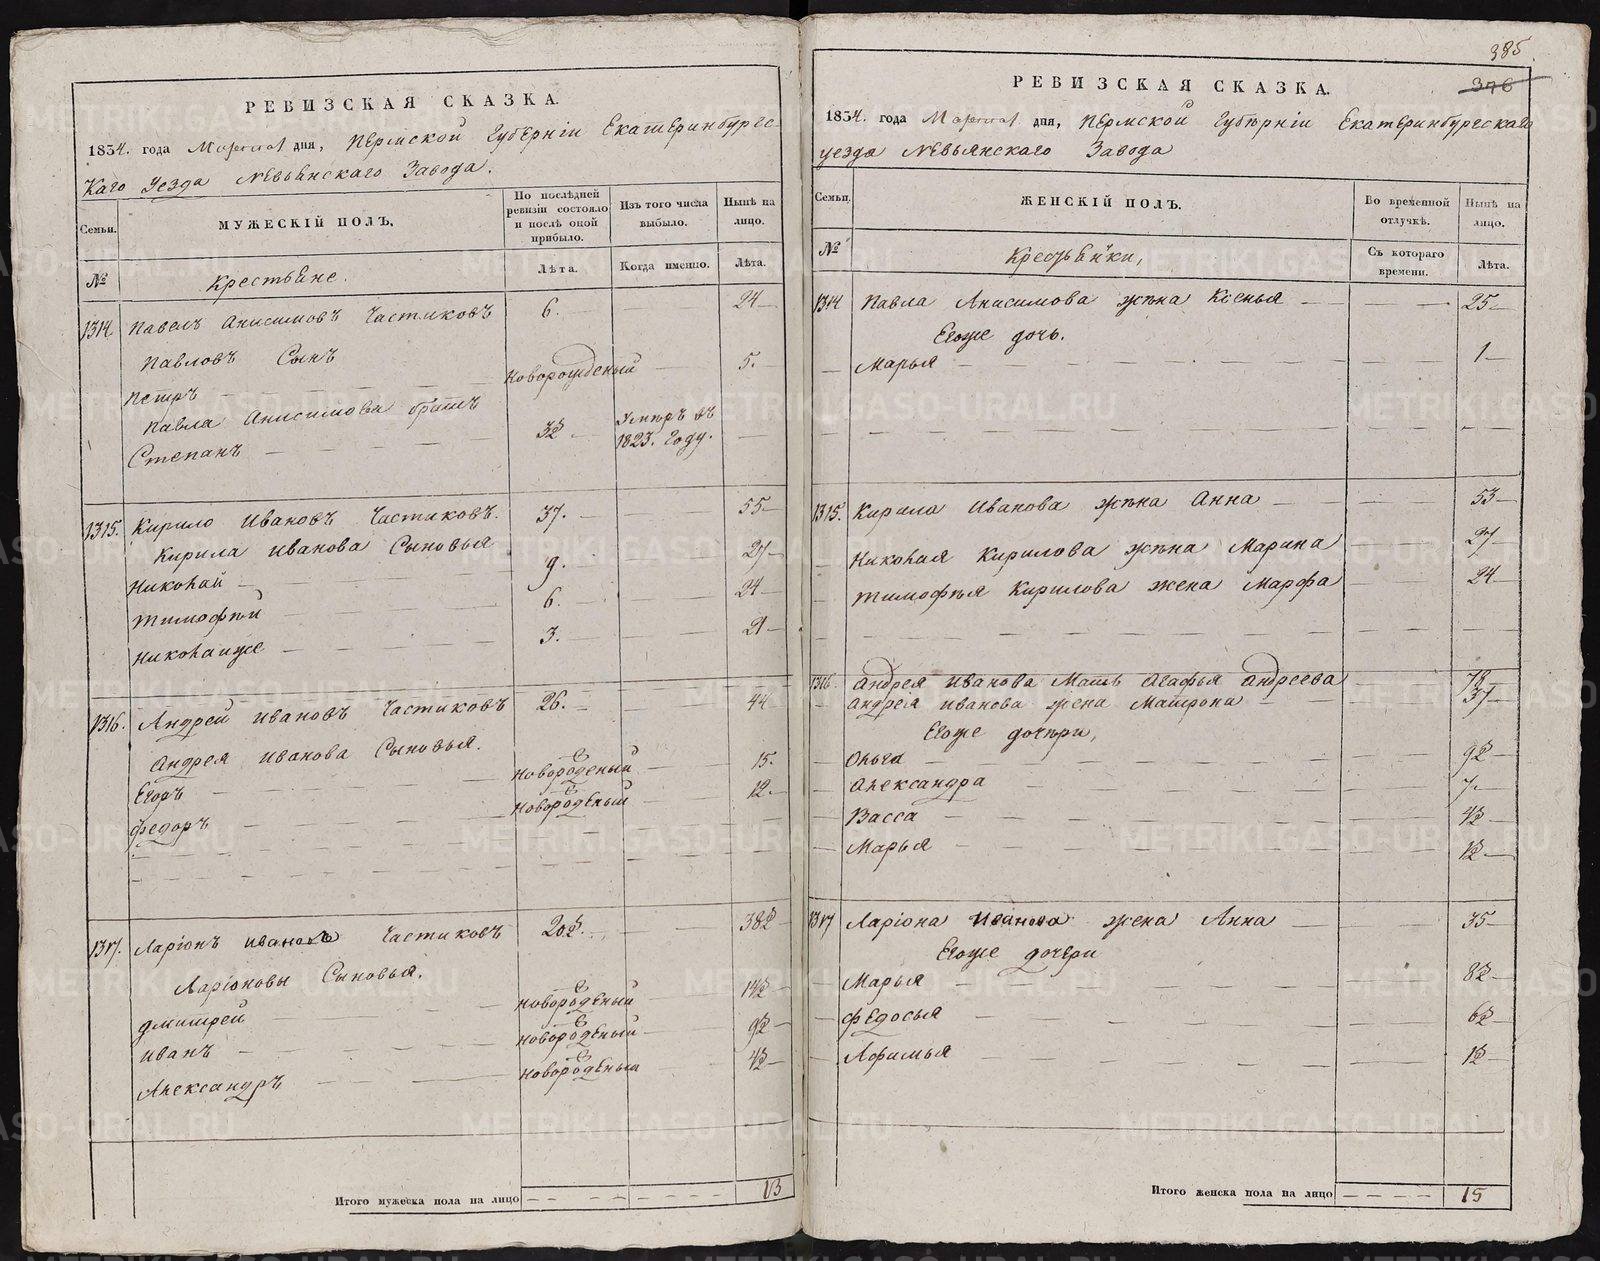 РЕВИЗСКАЯ СКАЗКА.
1834. года Марта дня, Пермской Губерніи Екатеринбургс-
каго Уезда Невьянскаго Завода.
Семьи.
МУЖЕСКІЙ ПОЛЪ.
По послѣдней ревизіи состояло и послѣ оной прибыло.
Изъ того числа выбыло.
Нынѣ на лицо.
№
Крестьяне.
Лѣта.
Когда именно.
Лѣта.
1314 Павелъ Анисимовъ Частиковъ 6. 24
Павловъ Сынъ
Петръ новорожденый 5.
Павла Анисимова братъ
Степанъ Умѣръ въ 1823. году.
1315. Кирило Ивановъ Частиковъ. 37. 55
Кирила Иванова Сыновья
Николай 9. 27
Тимофѣй 6. 24
Николайже 3. 21
1316. Андрей Ивановъ Частиковъ 26. 44
Андрея Иванова Сыновья.
Егоръ новороденый 15.
Федоръ новороденый 12.
1317. Ларіонъ Ивановъ Частиковъ 20½. 38½
Ларіоновы Сыновья.
Дмитрей новороденый 14½
Иванъ новороденый 9½
Александръ новороденый 4½
Итого мужеска пола на лицо 13
385.
376
РЕВИЗСКАЯ СКАЗКА.
1834. года Марта дня, Пермской Губѣрніи Екатеринбургскаго
уезда Невьянскаго Завода
Семьи.
ЖЕНСКІЙ ПОЛЪ.
Во временной отлучкѣ.
Нынѣ на лицо.
№
Крестьянки,
Съ котораго времени.
Лѣта.
1314 Павла Анисимова жѣна Ксенья 25
Егоже дочь.
Марья 1
1315. Кирила Иванова жѣна Анна 53
Николая Кирилова жѣна Марина 27
Тимофѣя Кирилова жена Марфа 24
1316. Андрея Иванова Мать Агафья Андреева 78
Андрея Иванова жена Матрона 37
Егоже дочѣри,
Ольга 9½
Александра 7
Васса 4½
Марья 1½
1317 Ларіона Иванова жена Анна 35
Егоже дочери
Марья 8½
Федосья 6½
Афимья 1½
Итого женска пола на лицо 15
METRIKI.GASO-URAL.RU